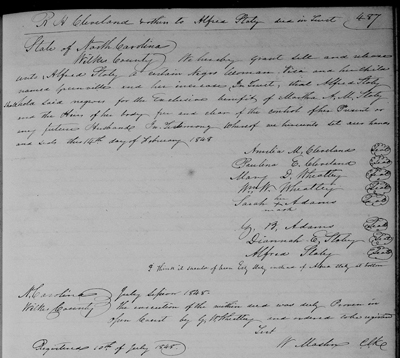 R H Cleveland & others to Alfred Staly deed in Trust 487
State of North Carolina
Wilkes County We hereby grant sell and release
unto Alfred Staly a certain Negro Woman and her child
named and her increase In trust, that Alfred Staly
said negroes for the Exclusive benefit, of Martha A. M. Staly
and the Heirs of her body free and clear of the control of her Present or
any future Husband In Testimony whereof we hereunto set our hands
and Seals this 14th day of February 1848
Amelia M. Cleveland Seal
Paulina E. Cleveland Seal
Mary D. Wheatley Seal
Wm W. Wheatley Seal
Sarah her Adams Seal
mark
B. Adams Seal
Diannah E. Staley Seal
Alfred Staley Seal
N. Carolina July Session 1848
Wilkes County The execution of the within deed was duly Proven in
open Court by Wheatley and ordered to be registered
Test
Registered 10th of July 1848 W Mastin Clk